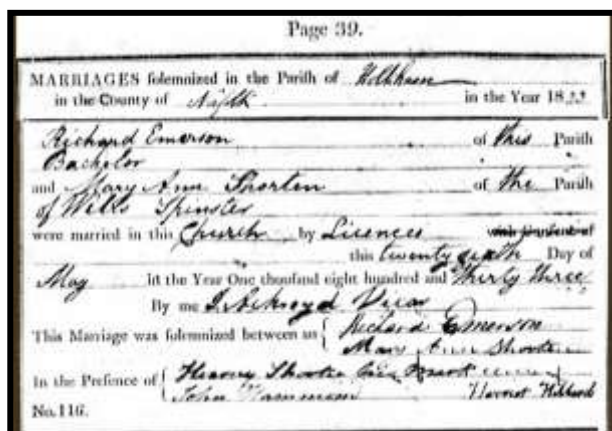 Page 39.
MARRIAGES solemnized in the Parish of Holkham
in the County of Norfolk in the Year 1833
Richard Emerson of this Parish
Bachelor
and Mary Ann Shorten of the Parish
of Wells Spinster
were married in this Church by Licence
this twenty sixth Day of
May in the Year One thousand eight hundred and thirty three
By me Vicar
This Marriage was solemnized between us { Richard Emerson
Mary Ann Shorten
In the Presence of { his mark
John Harriot
No. 116.